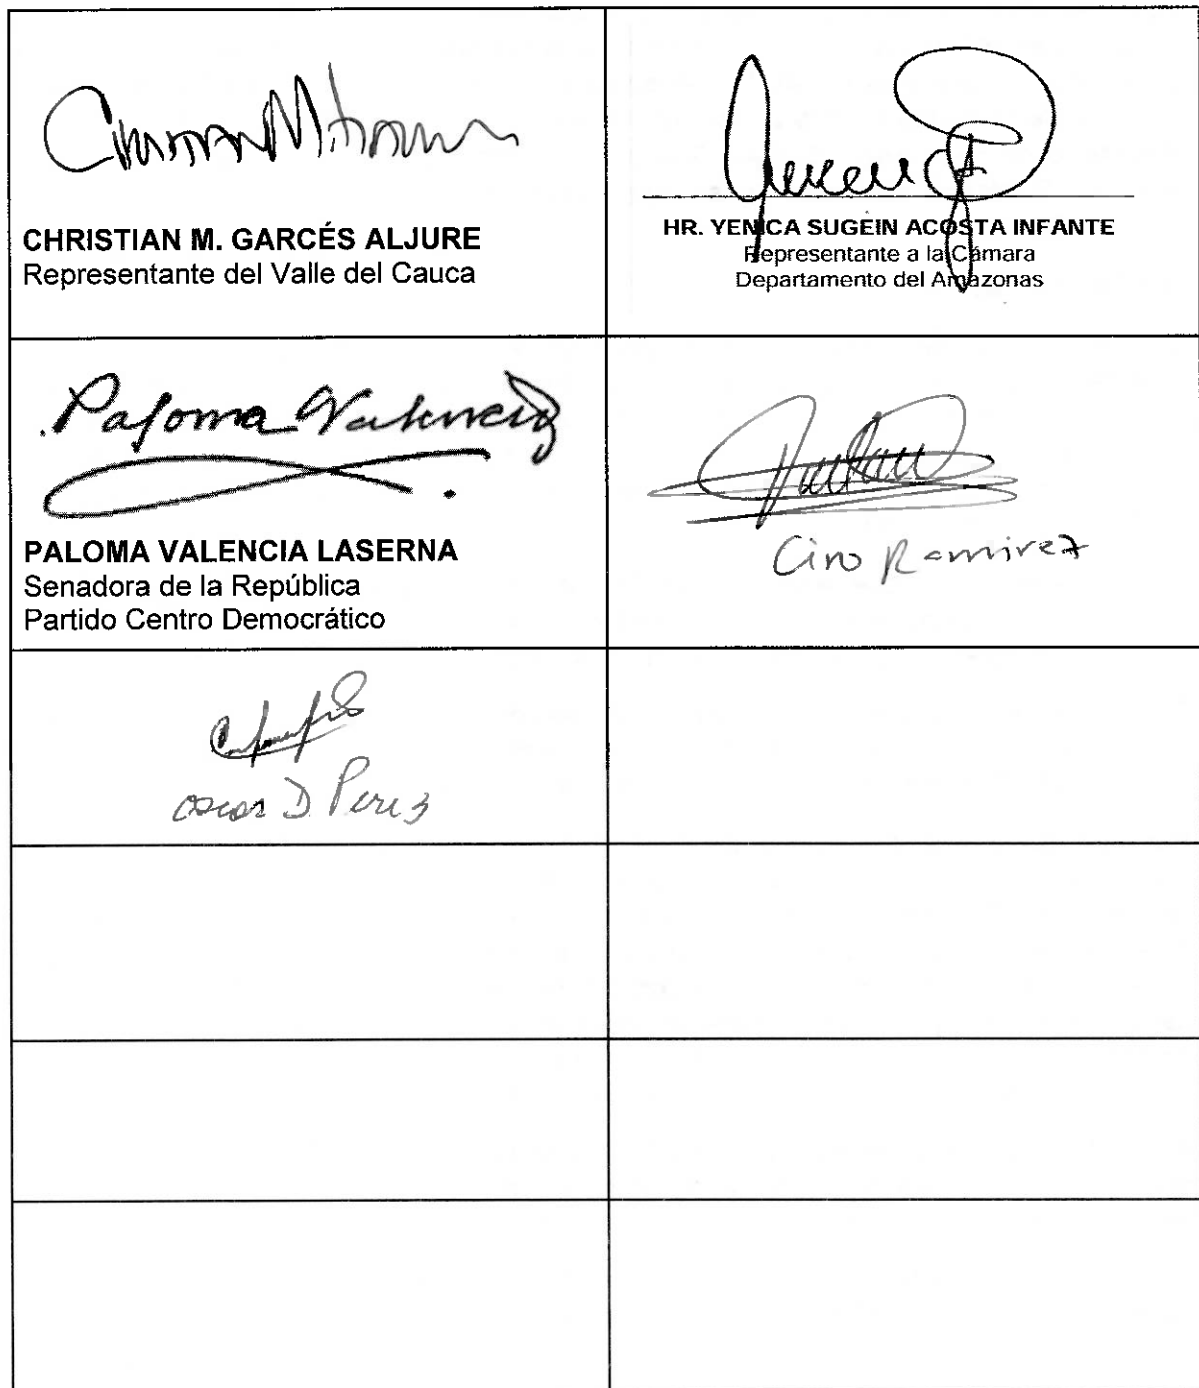 CHRISTIAN M. GARCÉS ALJURE
Representante del Valle del Cauca
HR. YENICA SUGEIN ACOSTA INFANTE
Representante a la Cámara
Departamento del Amazonas
Paloma Valencia
PALOMA VALENCIA LASERNA
Senadora de la República
Partido Centro Democrático
Ciro Ramirez
Oscar D Perez